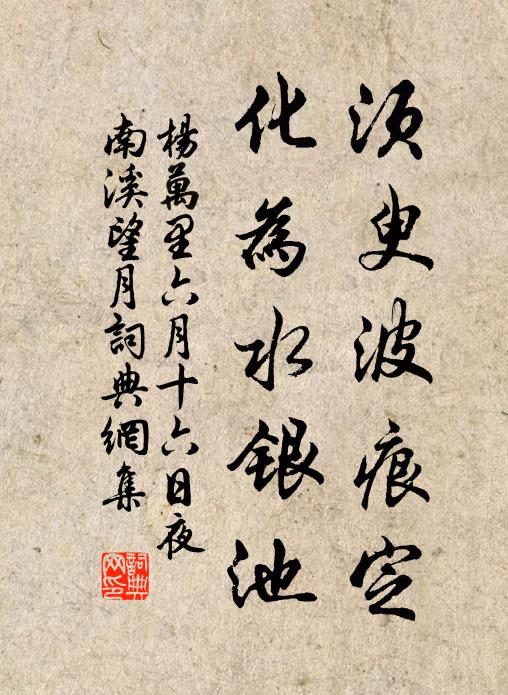 須臾波痕定
化為水銀池
楊萬里六月十六日夜
南溪望月詞典網集
詞典
网印